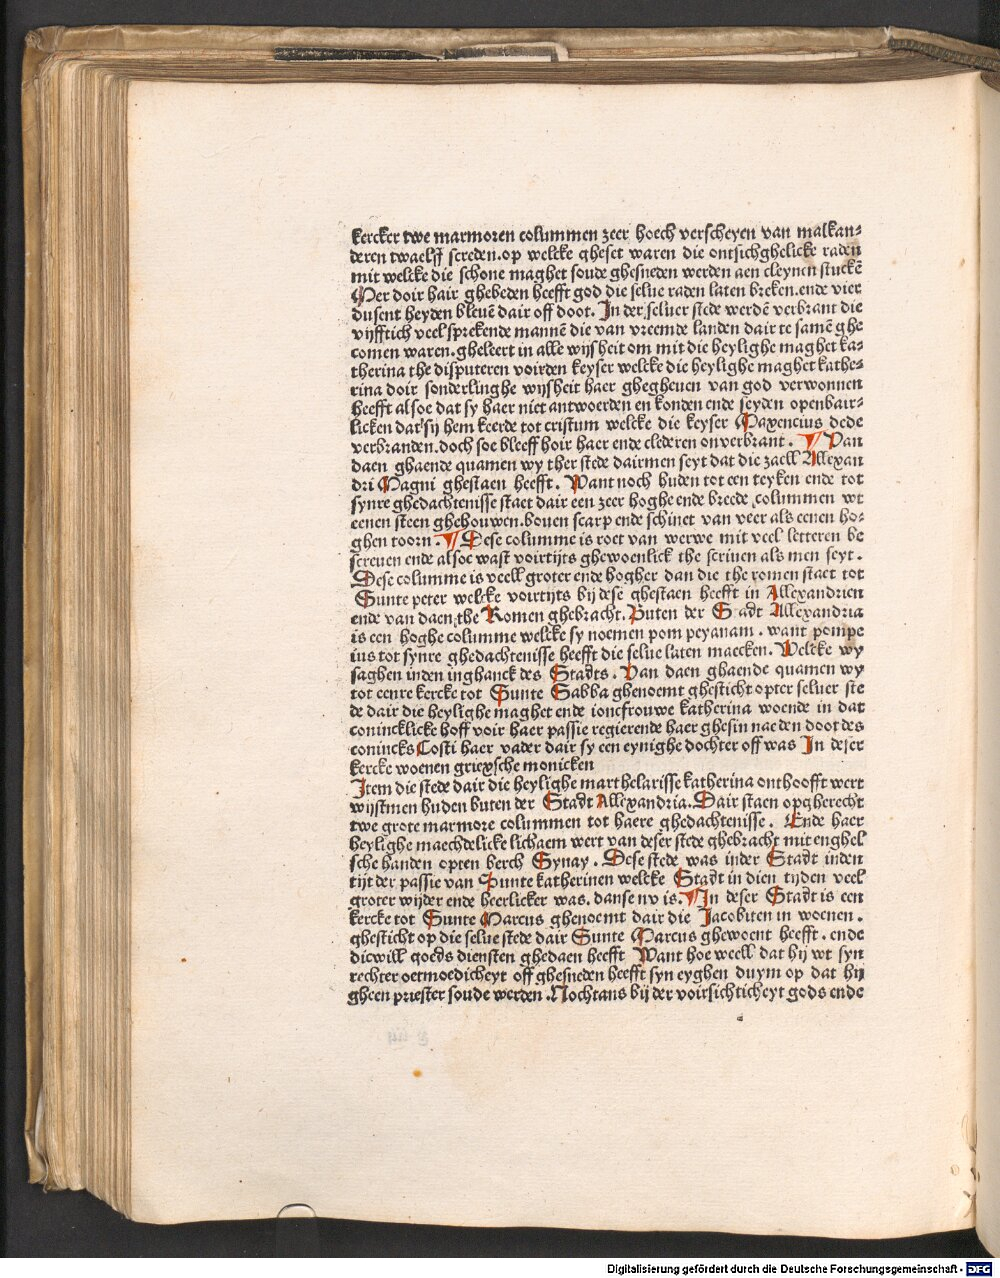 kercker twe marmoren colummen zeer hoech verscheyen van malkan⸗
deren twaelff screden. op welcke gheset waren die ontsichghelicke raden
mit welcke die schone maghet soude ghesneden werden aen cleynen stuckē
Mer doir hair ghebeden heefft god die selue raden laten breken. ende vier
dusent heyden bleuē dair off doot. In der seluer stede werdē verbrant die
vijfftich veel sprekende mannē die van vreemde landen dair te samē ghe
comen waren. gheleert in alle wijsheit om mit die heylighe maghet ka⸗
therina the disputeren voirden keyser welcke die heylighe maghet kathe⸗
rina doir sonderlinghe wijsheit haer ghegheuen van god verwonnen
heefft alsoe dat sy haer niet antwoerden en konden ende seyden openbair⸗
licken dat sij hem keerde tot cristum welcke die keyser Maxencius dede
verbranden. doch soe bleeff hoir haer ende clederen onverbrant. ¶ Van
daen ghaende quamen wy ther stede dairmen seyt dat die zaell Allexan
dri Magni ghestaen heefft. Want noch huden tot een teyken ende tot
synre ghedachtenisse staet dair een zeer hoghe ende breede colummen wt
eenen steen ghebouwen. bouen scarp ende schinet van veer als eenen ho⸗
ghen toorn. ¶ Dese columme is roet van werwe mit veel letteren be
screuen ende alsoe wast voirtijts ghewoenlick the scriuen als men seyt.
Dese columme is veell groter ende hogher dan die the romen staet tot
Sunte peter welcke voirtijts bij dese ghestaen heefft in Allexandrien
ende van daen the Romen ghebracht. Buten der Stadt Allexandria
is een hoghe columme welcke sy noemen pom peyanam. want pompe
ius tot synre ghedachtenisse heefft die selue laten maecken. Welcke wy
saghen inden inghanck des Stadts. Van daen ghaende quamen wy
tot eenre kercke tot Sunte Sabba ghenoemt ghesticht opter seluer ste
de dair die heylighe maghet ende ioncfrouwe katherina woende in dat
conincklicke hoff voir haer passie regierende haer ghesin nae den doot des
conincks Costi haer vader dair sy een eynighe dochter off was In deser
kercke woenen griexsche monicken
Item die stede dair die heylighe marthelarisse katherina onthoofft wert
wijstmen huden buten der Stadt Allexandria. Dair staen opgherecht
twe grote marmore colummen tot haere ghedachtenisse. Ende haer
heylighe maechdelicke lichaem wert van deser stede ghebracht mit enghel
sche handen opten berch Synay. Dese stede was inder Stadt inden
tijt der passie van Sunte katherinen welcke Stadt in dien tyden veel
groter wijder ende heerlicker was. danse nv is. ¶ In deser Stadt is een
kercke tot Sunte Marcus ghenoemt dair die Jacobiten in woenen.
ghesticht op die selue stede dair Sunte Marcus ghewoent heefft. ende
dicwill goeds diensten ghedaen heefft Want hoe weell dat hij wt syn
rechter oetmoedicheyt off ghesneden heefft syn eyghen duym op dat hij
gheen priester soude werden. Nochtans bij der voirsichticheyt gods ende
Digitalisierung gefördert durch die Deutsche Forschungsgemeinschaft - DFG